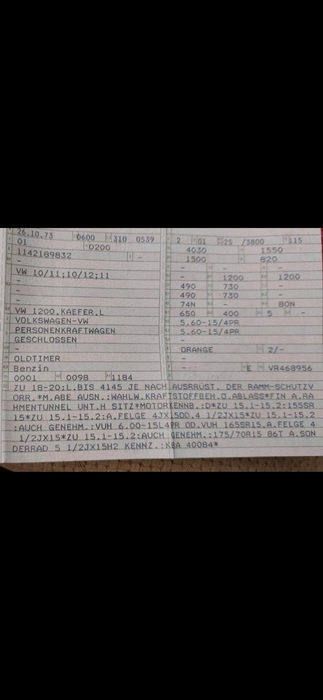 26.10.73 0600 310 0539
01 0200
1142189832 -
-
VW 10/11;10/12;11
-
-
VW 1200,KAEFER,L
VOLKSWAGEN-VW
PERSONENKRAFTWAGEN
GESCHLOSSEN
-
OLDTIMER
Benzin
0001 0098 1184
2 01 25 /3800 115
4030 1550
1500 820
- - -
- 1200 1200
490 730 -
490 730 -
74N - 80N
650 400 5 -
5.60-15/4PR
5.60-15/4PR
-
ORANGE 2/-
-
E VR468956
ZU 18-20:L.BIS 4145 JE NACH AUSRRÜST. DER RAMM-SCHUTZV
ORR.*M.ABE AUSN.:WAHLW.KRAFTSTOFFBEH.O.ABLASS*FIN A.RA
HMENTUNNEL UNT.H SITZ*MOTORKENNB.:D*ZU 15.1-15.2:155SR
15*ZU 15.1-15.2:A.FELGE 4JX15OD.4 1/2JX15*ZU 15.1-15.2
:AUCH GENEHM.:VUH 6.00-15L4PR OD.VUH 165SR15,A.FELGE 4
1/2JX15*ZU 15.1-15.2:AUCH GENEHM.:175/70R15 86T A.SON
DERRAD 5 1/2JX15H2 KENNZ.:KBA 40084*